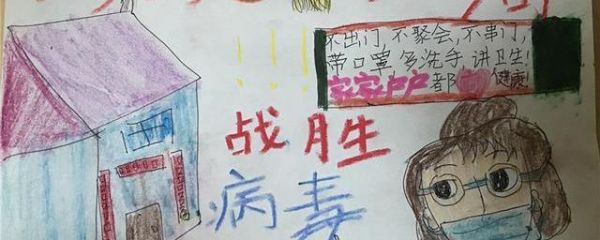 不出门,不聚会,不串门,
带口罩,多洗手,讲卫生!
家家户户都健康!
!!!
战胜
病毒